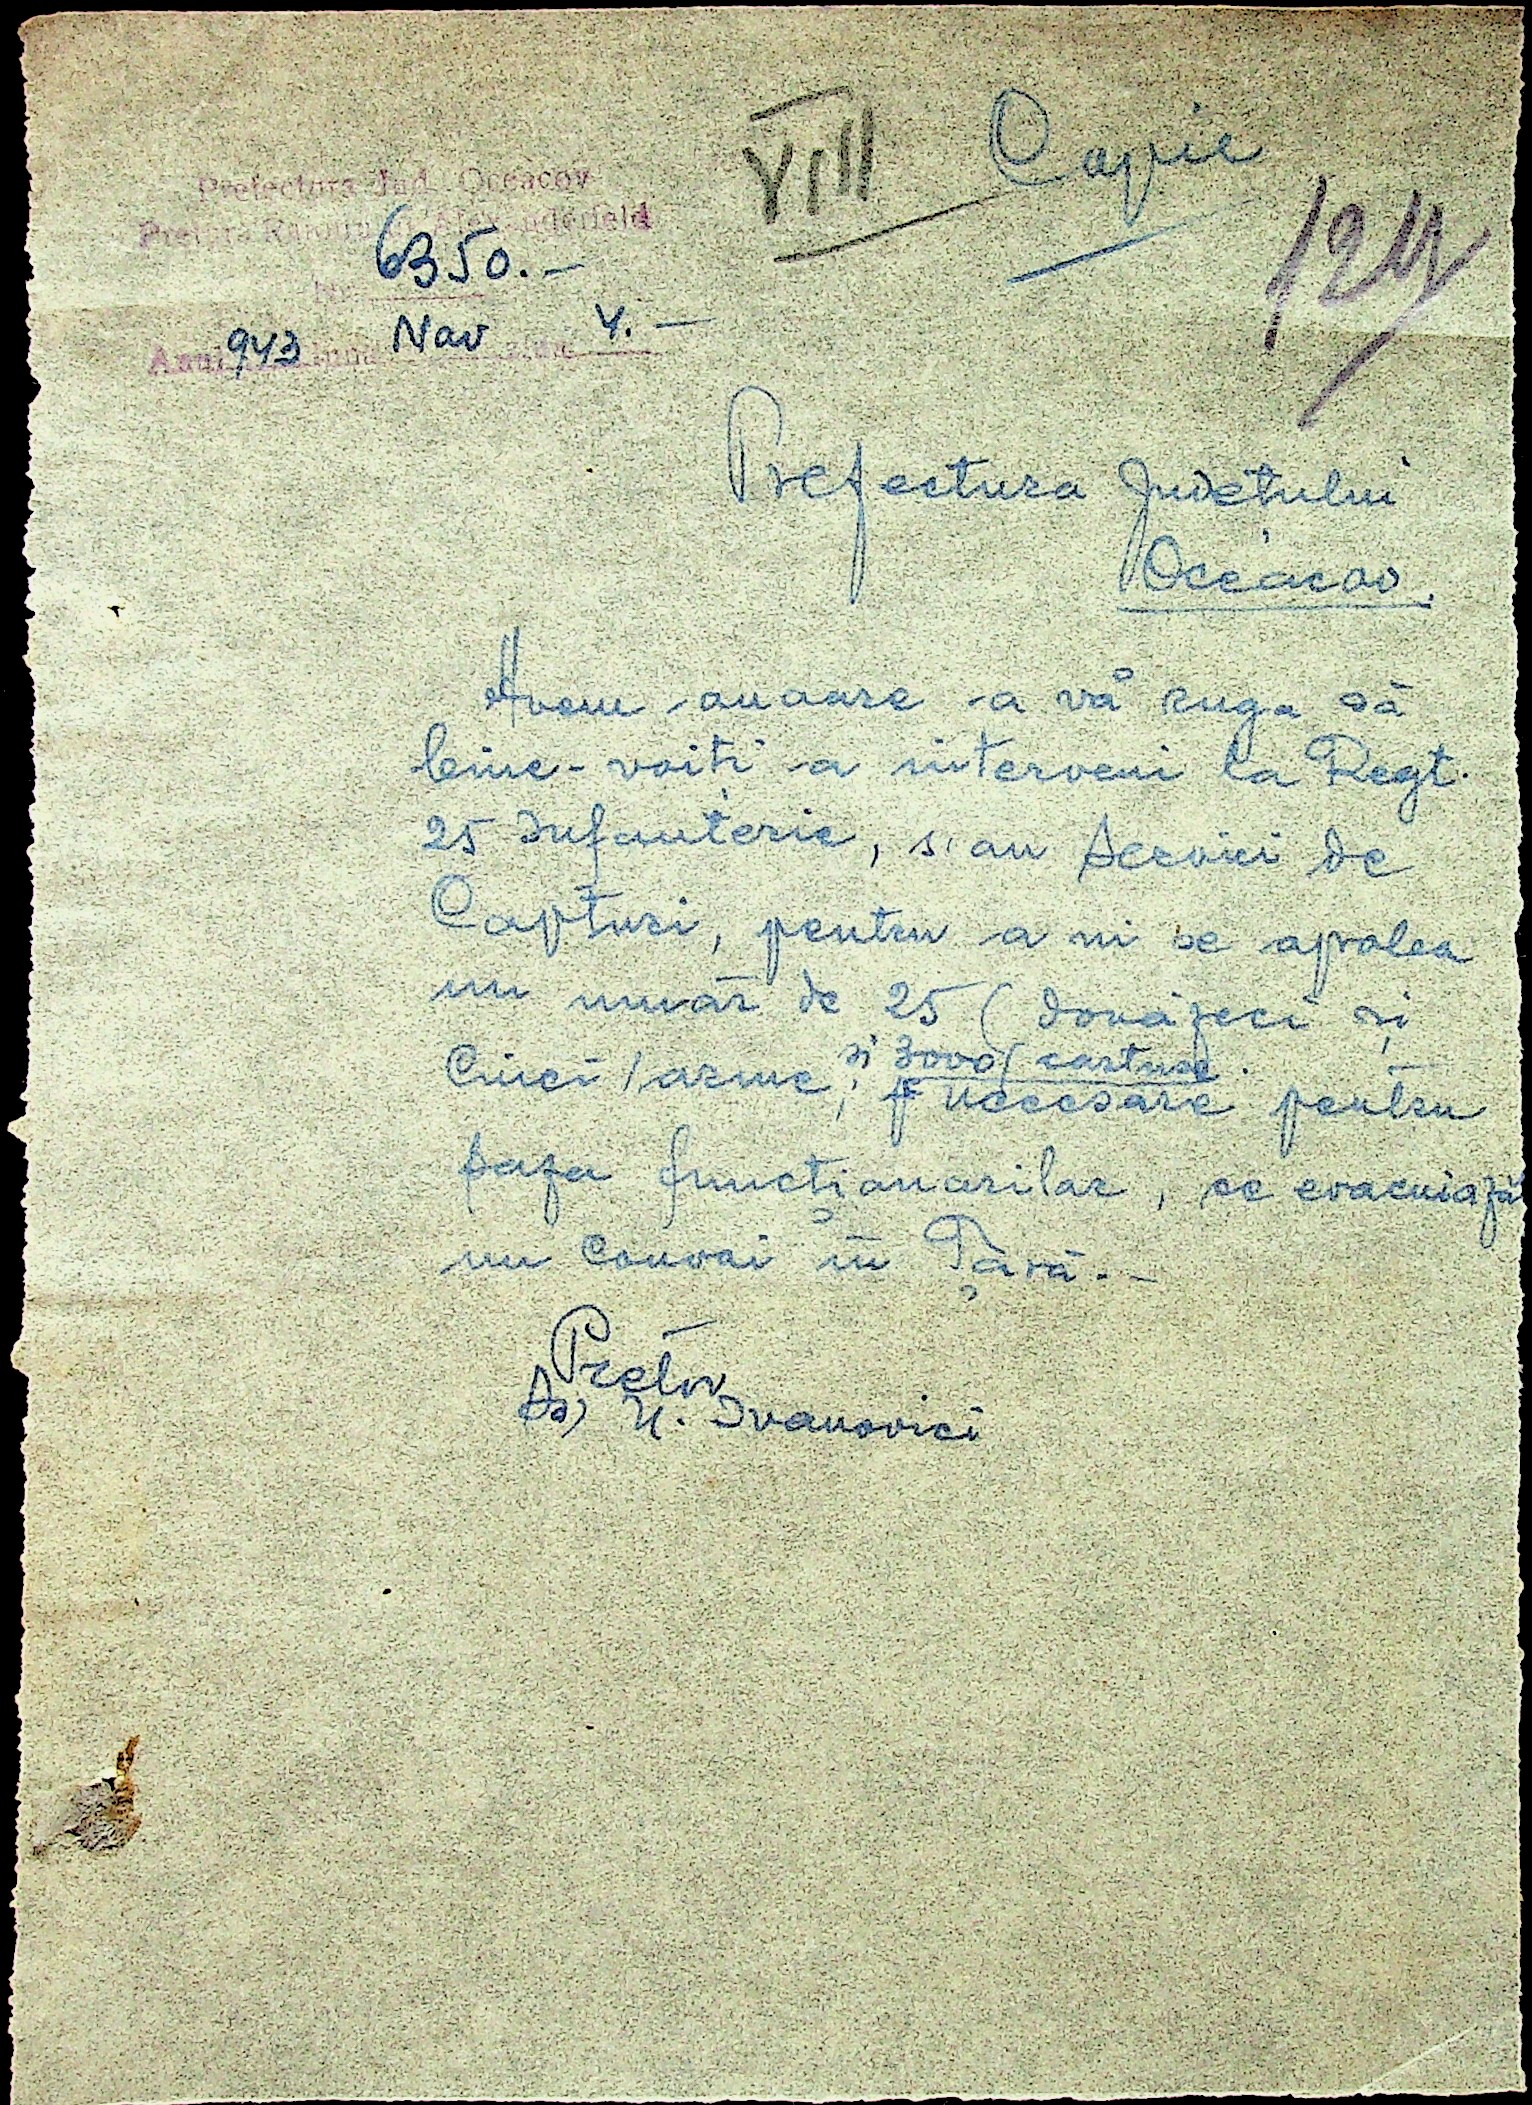 VIII Copie
Prefectura Jud. Oceacov
Pretura Raionului Alexanderfeld
No. 6350.-
Anul 943 luna Nov ziua 4.-
Prefectura Județului
Oceacov.
Avem onoare a vă ruga să
bine-voiți a interveni la Regt.
25 Infanterie, sau Servici de
Capturi, pentru a ni se aproba
un număr de 25 (douăzeci și
cinci/ arme, și 3000 cartușe
necesare pentru
paza funcționarilor, ce evacuiază
un convoi în Țară.-
Pretor
Ss) N. Ivanovici